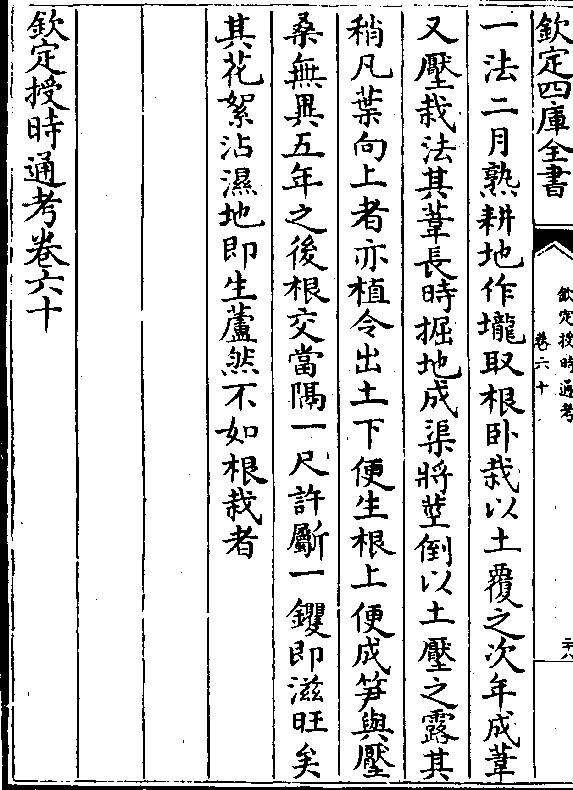 欽定四庫全書
欽定授時通考
卷六十
二六
一法二月熟耕地作壠取根卧栽以土覆之次年成葦
又壓栽法其葦長時掘地成渠將莖倒以土壓之露其
稍凡葉向上者亦植令出土下便生根上便成笋與壓
桑無異五年之後根交當隔一尺許斸一钁即滋旺矣
其花絮沾濕地即生蘆然不如根栽者
欽定授時通考卷六十